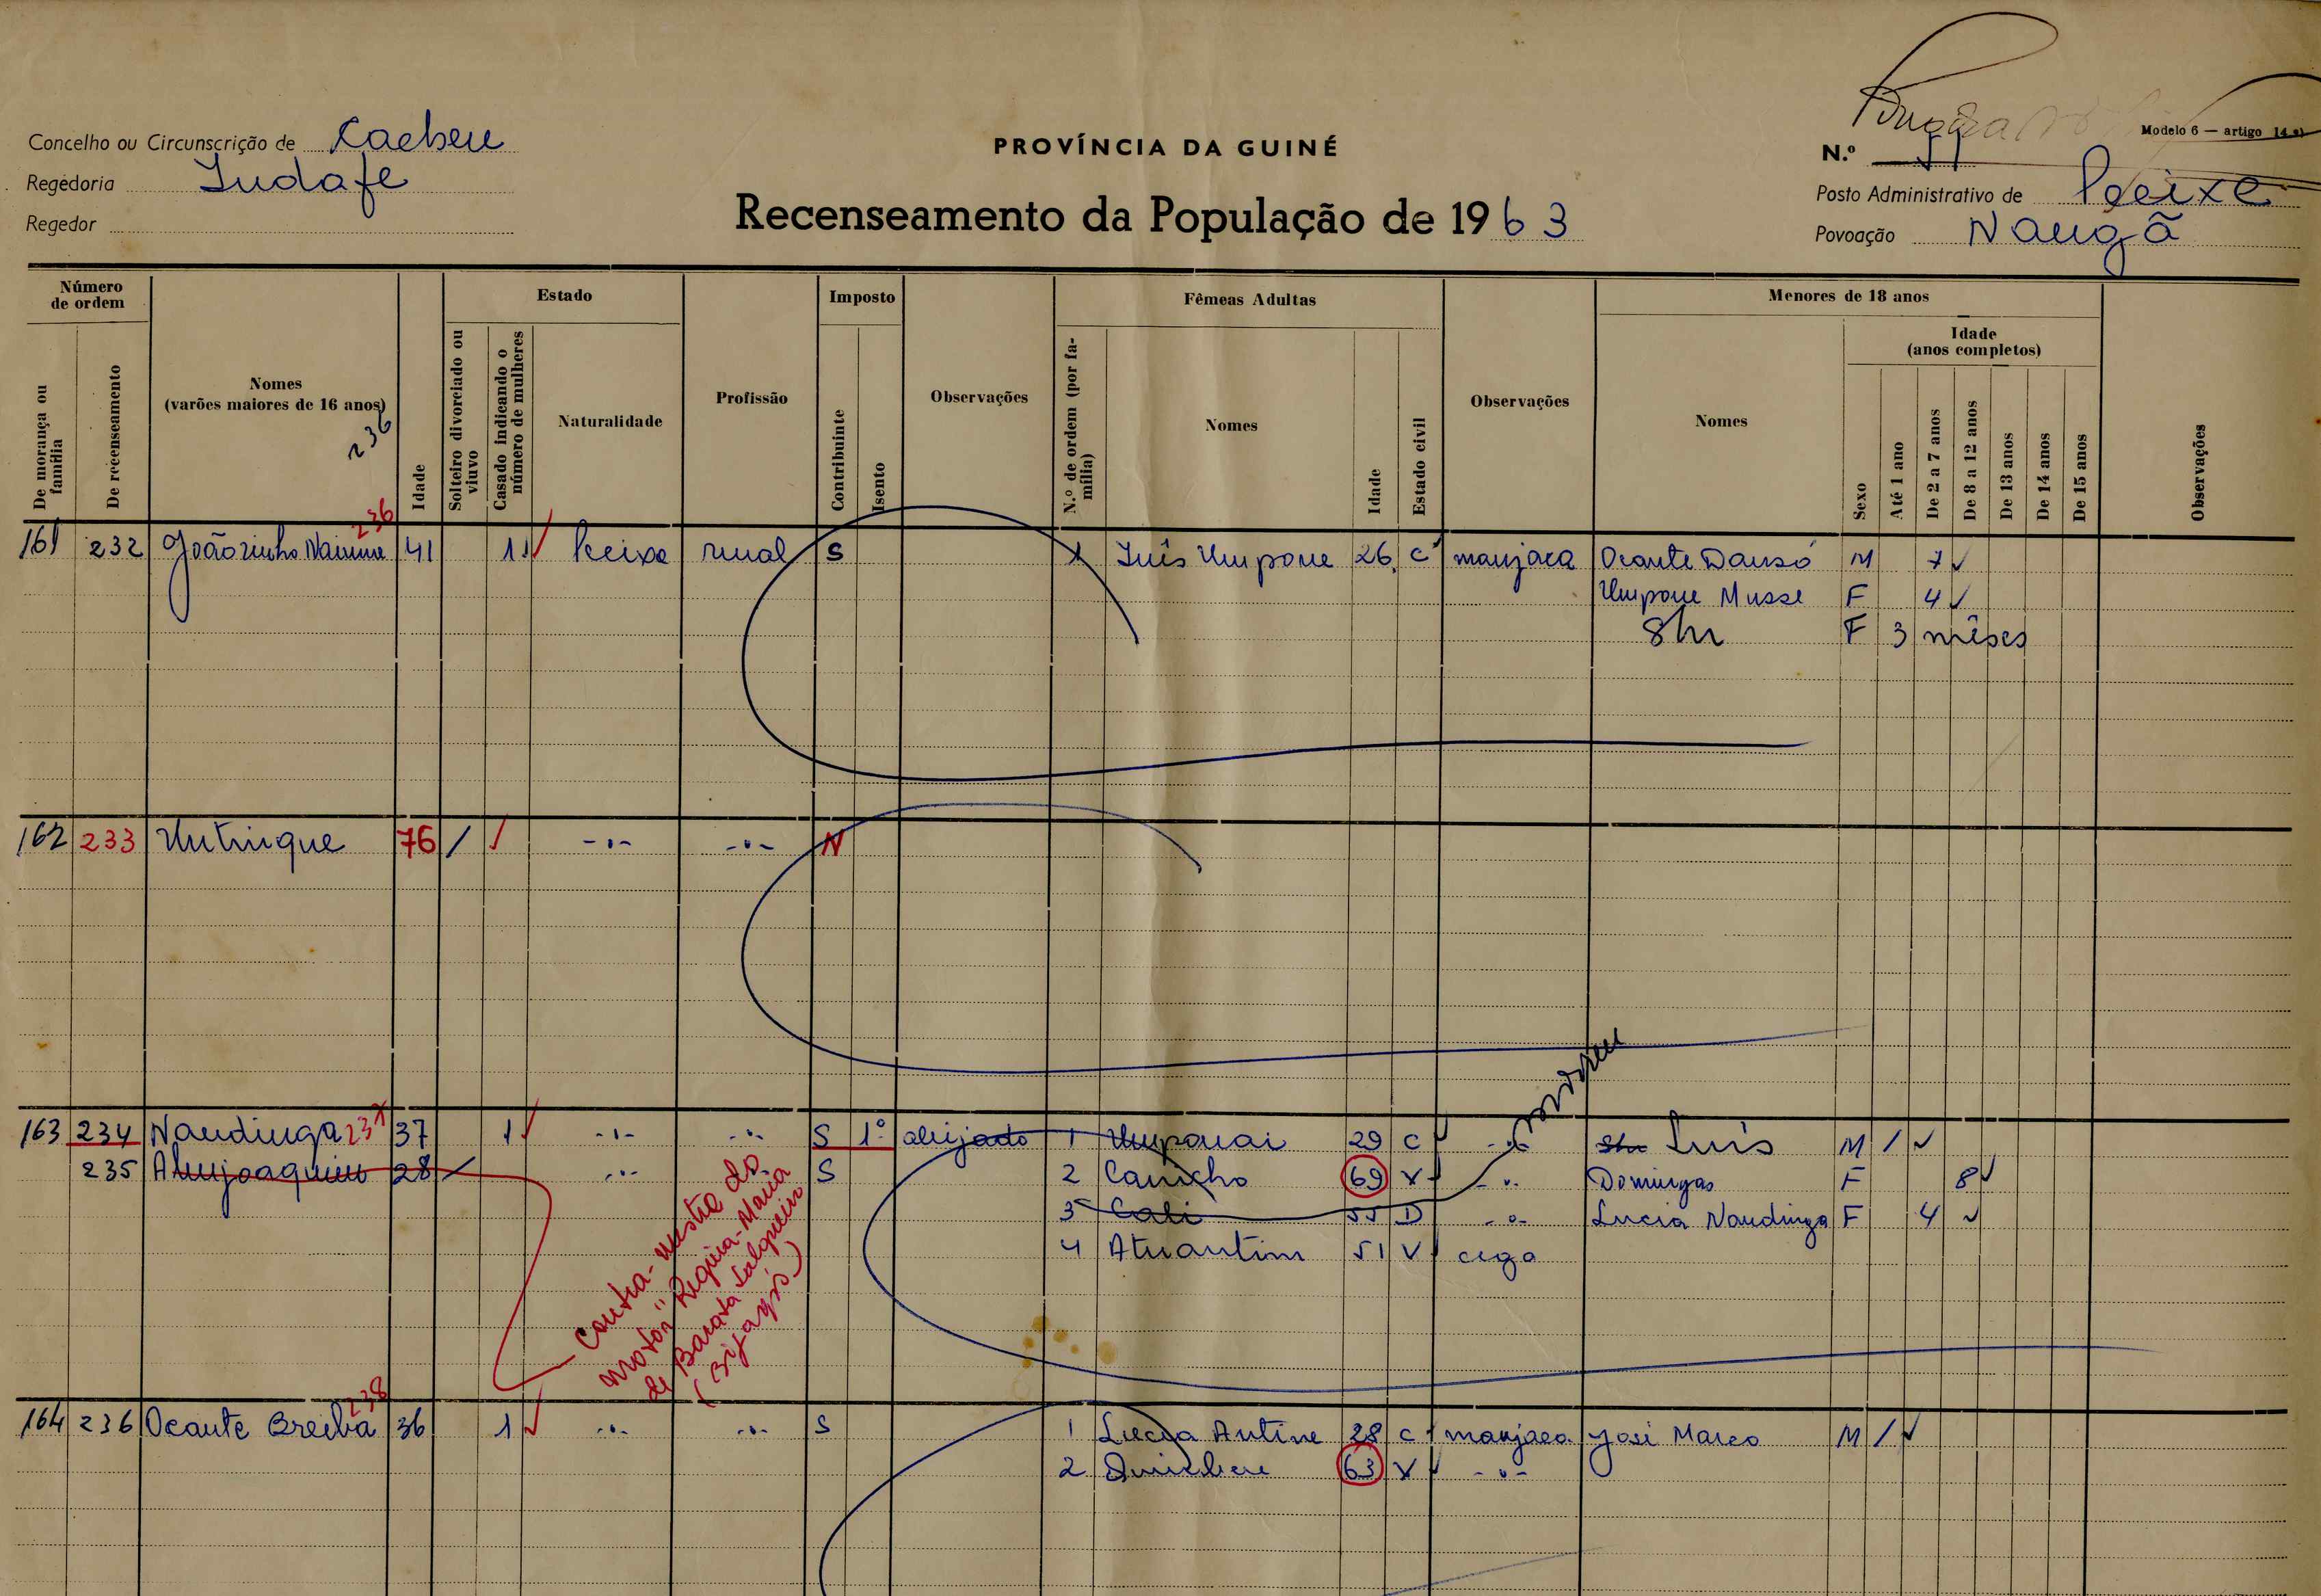 Modelo 6 — artigo 14
Concelho ou Circunscrição de Cacheu
PROVÍNCIA DA GUINÉ
N.º 51
Regedoria Indafe
Posto Administrativo de Peixe
Recenseamento da População de 1963
Regedor
Povoação Nangã
Número de ordem
Estado
Imposto
Fêmeas Adultas
Menores de 18 anos
Idade (anos completos)
De morança ou família
De recenseamento
Nomes (varões maiores de 16 anos)
236
Idade
Solteiro divorciado ou viuvo
Casado indicando o número de mulheres
Naturalidade
Profissão
Contribuinte
Isento
Observações
N.º de ordem (por família)
Nomes
Idade
Estado civil
Observações
Nomes
Sexo
Até 1 ano
De 2 a 7 anos
De 8 a 12 anos
De 13 anos
De 14 anos
De 15 anos
Observações
236
161 232 Joãozinho 41 1 Peixe rural S 1 Inês Umpone 26 C manjaca Ocante Dansó M 7
Umpone Musse F 4
F 3 mêses
162 233 Untinque 76 / -"- -"- N
163 234 Nandinga 237 37 1 -"- -"- S 1º aleijado 1 Umponai 29 C -"- Luís M /
235 Ahujoaquim 28 / -"- -"- S 2 Canicho 69 V -"- Domingas F 8
3 Cali 55 D -"- Lucia Nandinga F 4
4 Atuantim 51 V cega
morreu
contra-mestre do
motor "Regina-Maria
de Barata Salgueiro
(Bijagós)
238
164 236 Ocante Breiba 36 1 -"- -"- S 1 Lucia Antine 28 C manjaca José Marco M /
2 63 V -"-